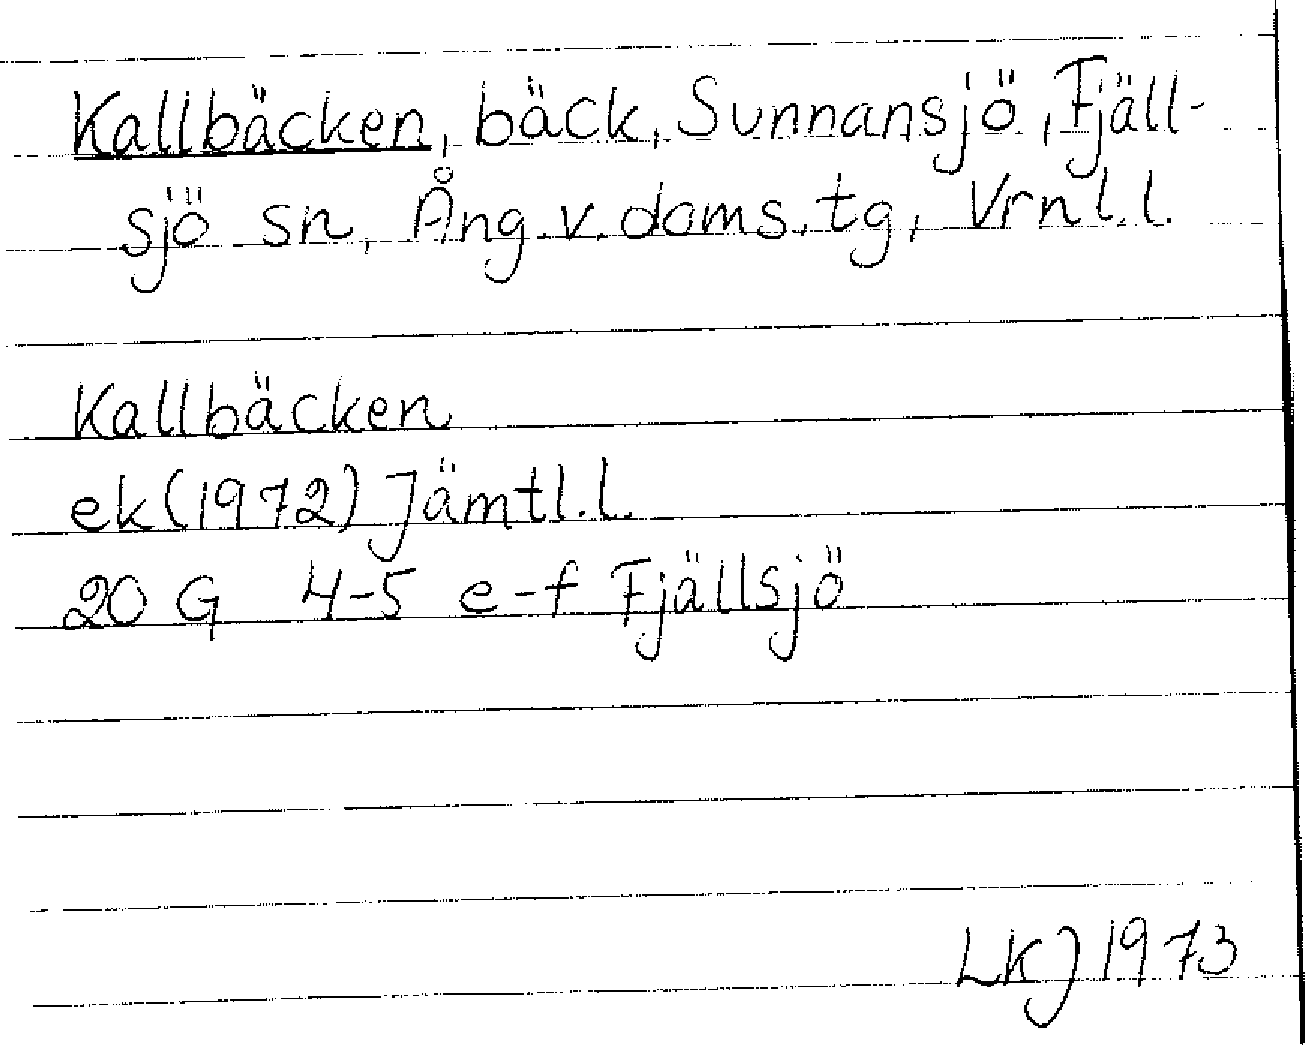 Kallbäcken, bäck, Sunnansjö, Fjäll-
sjö sn, Ång.v.doms.tg, Vrnl.l.
Kallbäcken
ek(1972) Jämtl.l.
20 G 4-5 e-f Fjällsjö
LKJ 1973